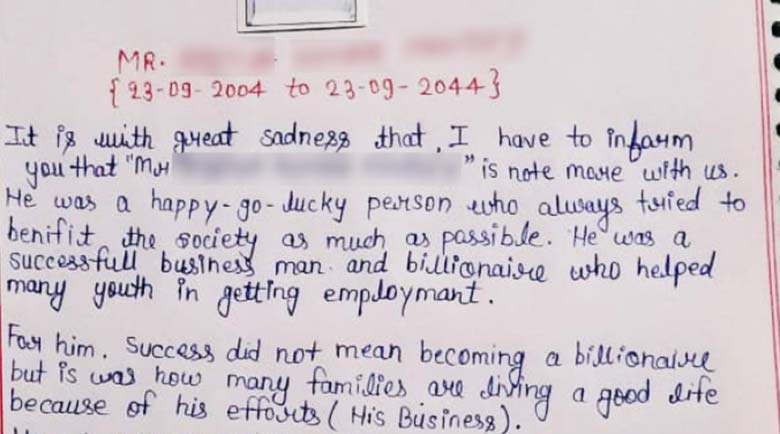 MR.
{ 23-09-2004 to 23-09-2044}
It is with great sadness that, I have to inform
you that "Mr " is note more with us.
He was a happy-go-lucky person who always tried to
benifit the society as much as possible. He was a
successfull business man. and billionaire who helped
many youth in getting employmant.
For him. Success did not mean becoming a billionaire
but is was how many families are living a good life
because of his efforts ( His Business).